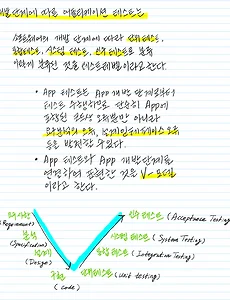 개발단계에 따른 어플리케이션 테스트는
소프트웨어의 개발 단계에 따라 단위 테스트,
통합테스트, 시스템 테스트, 인수 테스트로 분류
이렇게 분류된 것을 테스트레벨이라고 한다.
• App 테스트는 App 개발 단계에서부터
테스트 수행하므로 단순히 App에
포함된 코드상 오류뿐만 아니라
요구분석의 오류, 설계인터페이스 오류
등을 발견할 수 있다.
• App 테스트와 App 개발 단계를
연결하여 표현한 것을 V-모델
이라고 한다.
요구사항
(Requirement)
분석
(Specification)
설계
(Design)
구현
(code)
인수 테스트 (Acceptance Testing)
시스템 테스트 (System Testing)
통합 테스트 (Integration Testing)
단위 테스트 (Unit testing)